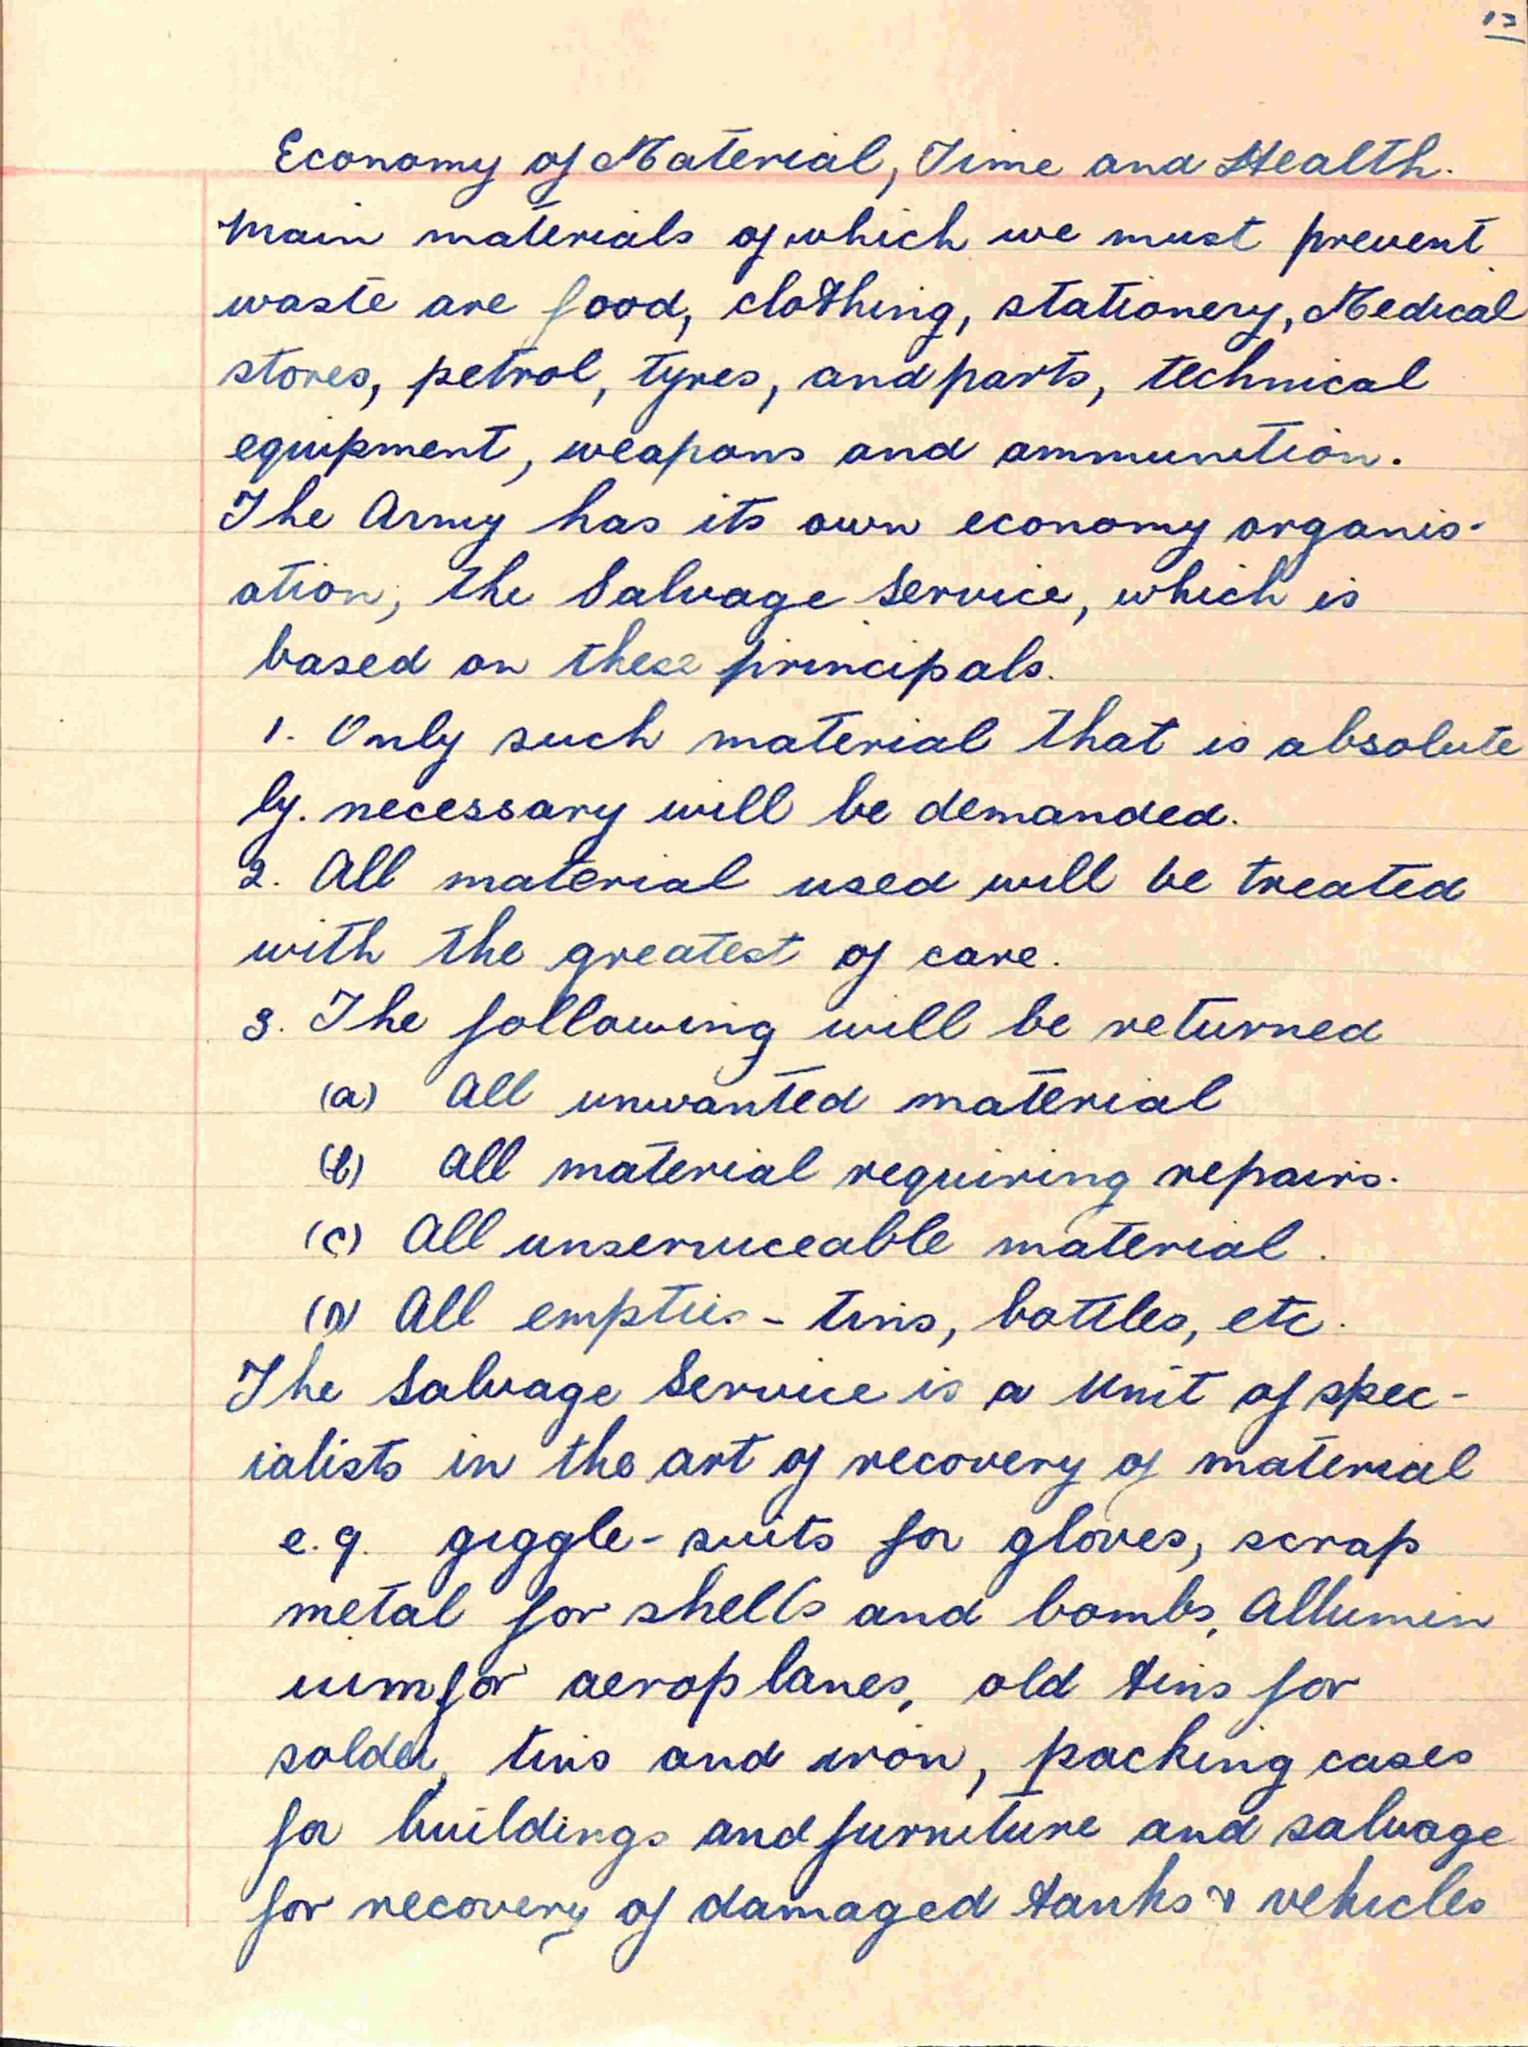 Economy of Material, Time and Health.
Main materials of which we must prevent
waste are food, clothing, stationery, Medical
stores, petrol, tyres, and parts, technical
equipment, weapons and ammunition.
The Army has its own economy organis-
ation, the Salvage Service, which is
based on these principals.
1. Only such material that is absolute
ly. necessary will be demanded.
2. All material used will be treated
with the greatest of care.
3. The following will be returned
(a) All unwanted material
(b) All material requiring repairs.
(c) All unserviceable material.
(D) All empties - tins, bottles, etc.
The Salvage Service is a Unit of spec-
ialists in the art of recovery of material
e.g. giggle-suits for gloves, scrap
metal for shells and bombs, Allumin
ium for aeroplanes, old tins for
solder, tins and iron, packing cases
for buildings and furniture and salvage
for recovery of damaged tanks & vehicles